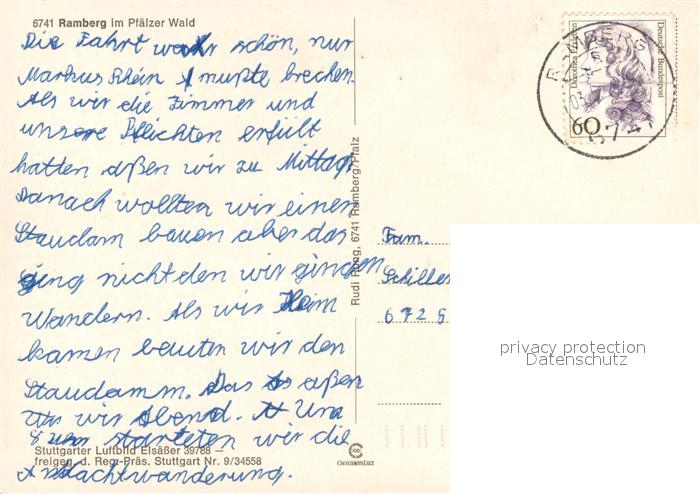 6741 Ramberg im Pfälzer Wald
Die Fahrt war schön, nur
Markus Rhein mußte brechen.
Als wir die Zimmer und
unsere Pflichten erfült
hatten aßen wir zu Mittag.
Danach wollten wir einen
Staudam bauen aber das
ging nicht den wir gingen
Wandern. Als wir Heim
kamen bauten wir den
Staudamm. Das aßen
wir Abend. Und
8 uhr starteten wir die
Nachtwanderung.
Stuttgarter Luftbild Elsäßer 39788 –
freigeg. d. Reg.-Präs. Stuttgart Nr. 9/34558
Rudi Rung, 6741 Ramberg/Pfalz
Deutsche Bundespost
60
RAMBERG
6741
Fam.
Schiller
6725
privacy protection
Datenschutz